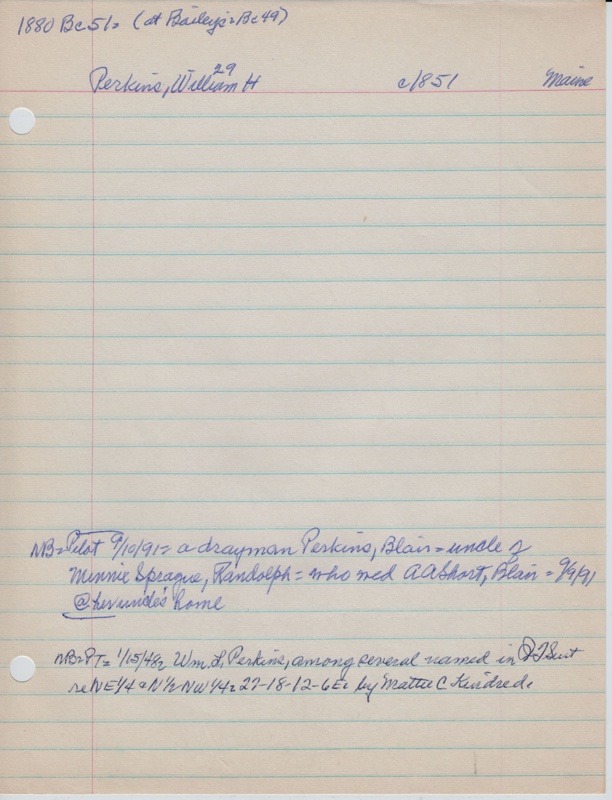 1880 Bc51= (at Bailey's=Bc49)
29
Perkins, William H c1851 Maine
NB=Pilot 9/10/91= a drayman Perkins, Blair= uncle of
Minnie Sprague, Randolph= who wed AAShort, Blair= 9/9/91
@ her uncle's home
NB=PT= 1/15/48= Wm. L, Perkins, among several named in QTSuit
re NE1/4 & N1/2 NW1/4= 27-18-12-6E= by Mattie C Kindred.